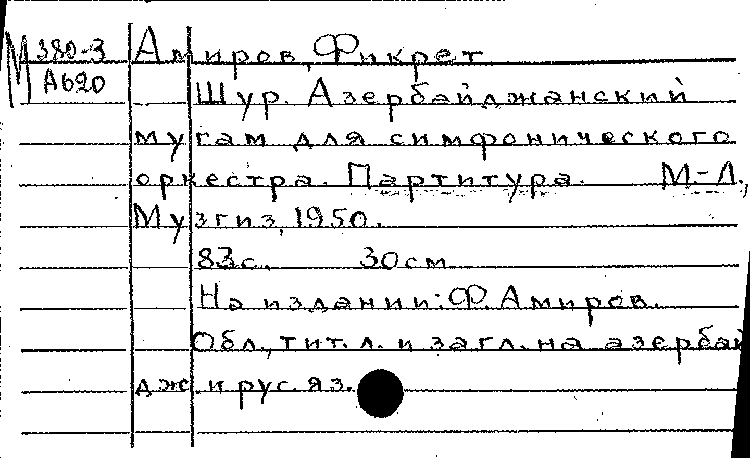 М 380-3 Амиров, Фикрет
А620
Шур. Азербайджанский
мугам для симфонического
оркестра. Партитура. М.-Л.,
Музгиз, 1950.
83с. 30см
На издании: Ф. Амиров.
Обл., тит. л. и загл. на азербай
дж и рус. яз.